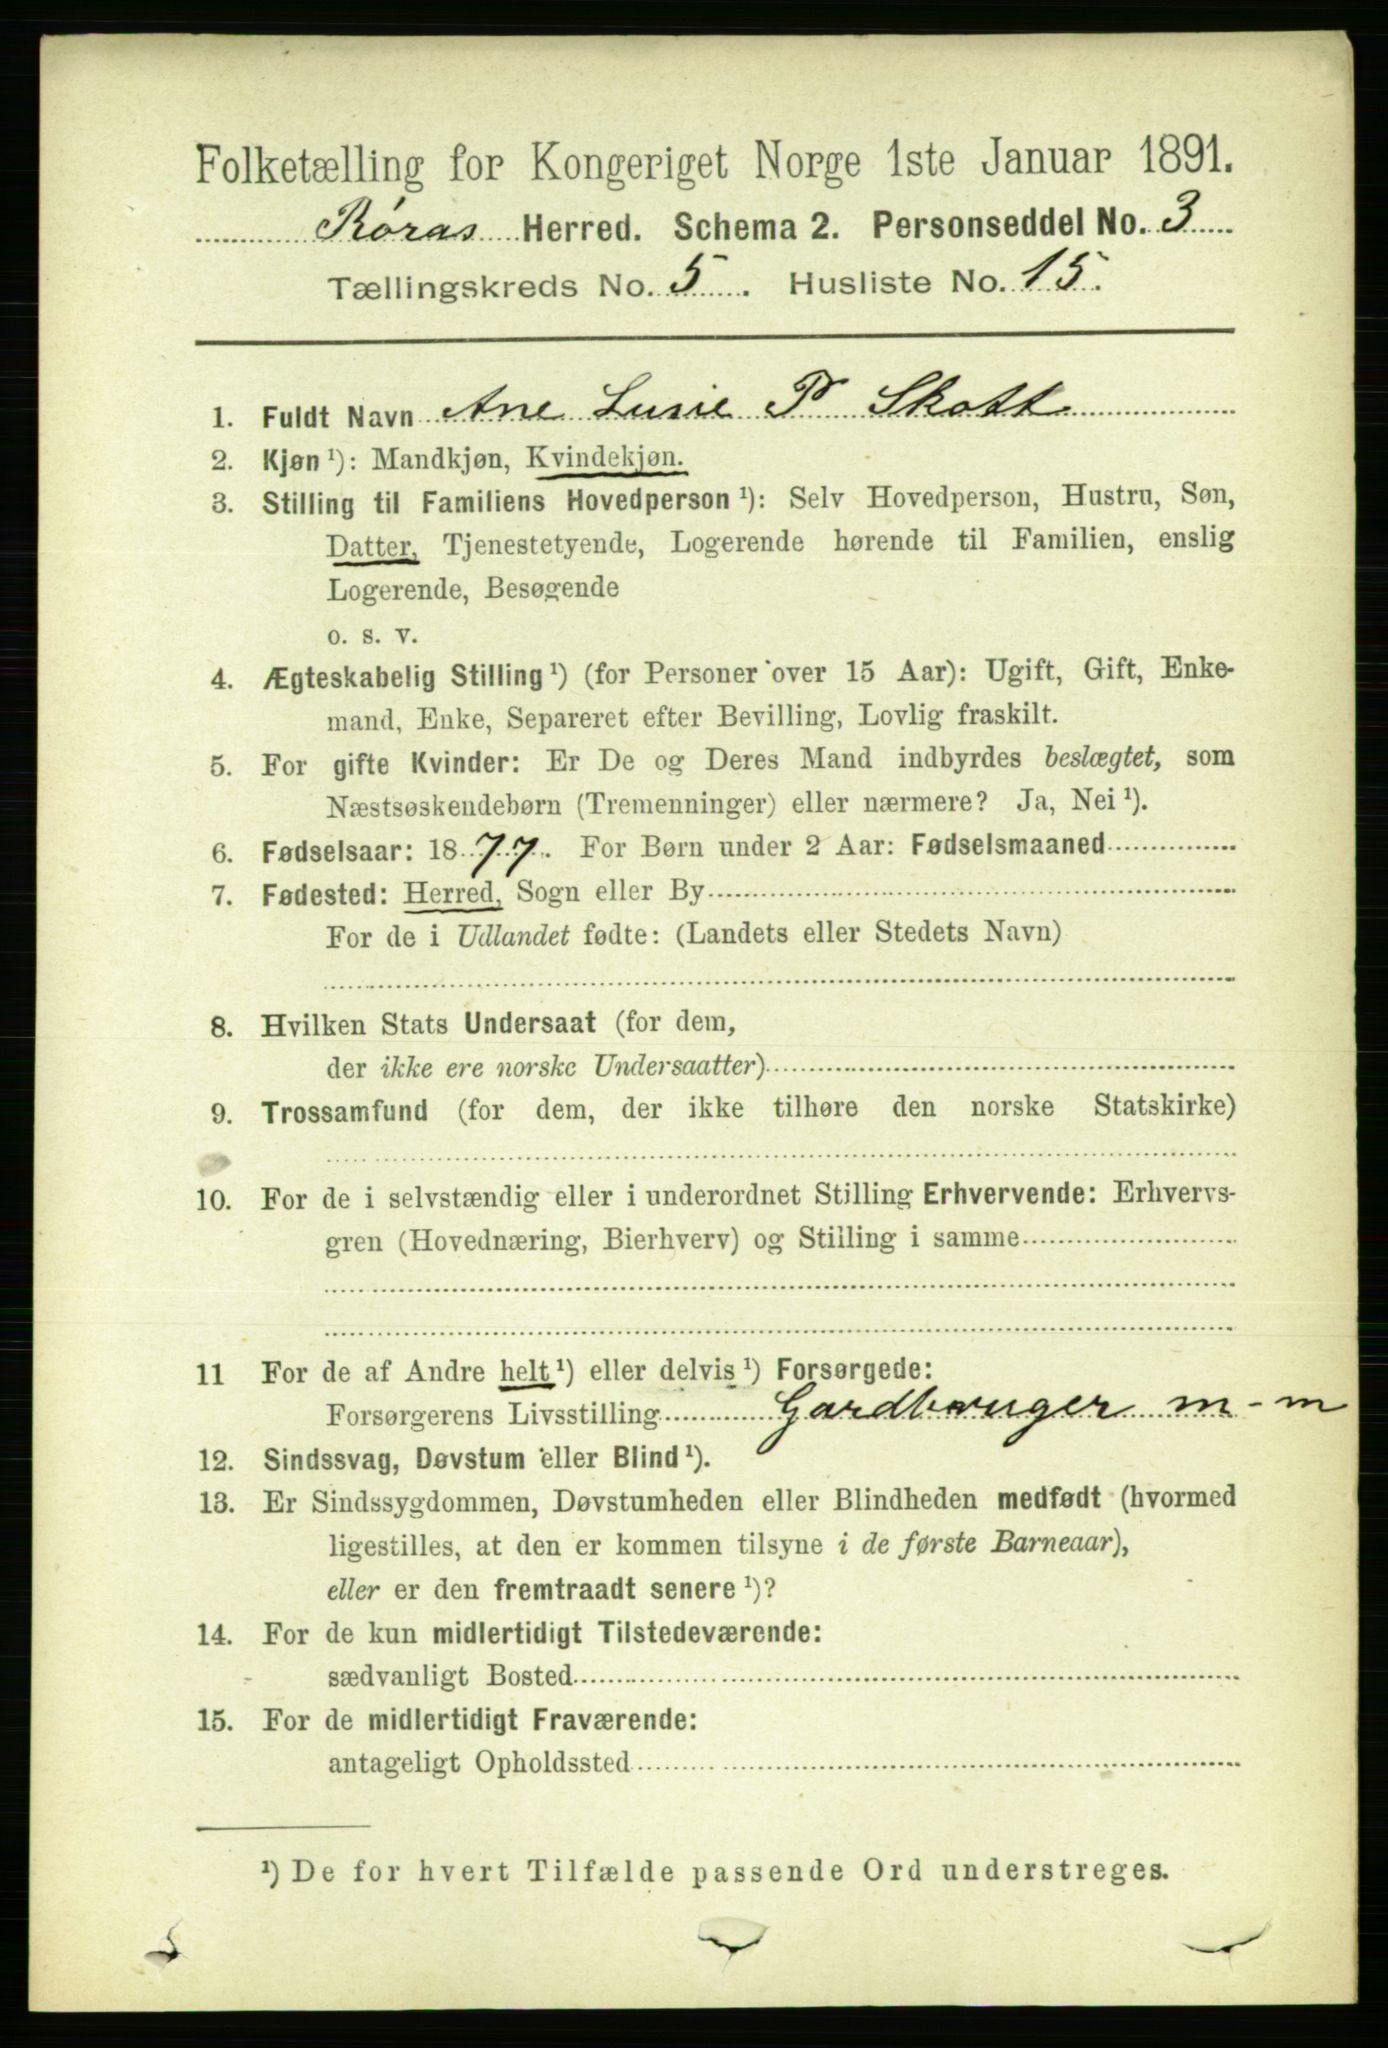 Folketælling for Kongeriget Norge 1ste Januar 1891.
Røras Herred. Schema 2. Personseddel No. 3
Tællingskreds No. 5. Husliste No. 15.
1. Fuldt Navn Ane Lusie P Skott
2. Kjøn¹): Mandkjøn, Kvindekjøn.
3. Stilling til Familiens Hovedperson¹): Selv Hovedperson, Hustru, Søn,
Datter, Tjenestetyende, Logerende hørende til Familien, enslig
Logerende, Besøgende
o. s. v.
4. Ægteskabelig Stilling¹) (for Personer over 15 Aar): Ugift, Gift, Enke-
mand, Enke, Separeret efter Bevilling, Lovlig fraskilt.
5. For gifte Kvinder: Er De og Deres Mand indbyrdes beslægtet, som
Næstsøskendebørn (Tremenninger) eller nærmere? Ja, Nei¹).
6. Fødselsaar: 1877. For Børn under 2 Aar: Fødselsmaaned
7. Fødested: Herred, Sogn eller By
For de i Udlandet fødte: (Landets eller Stedets Navn)
8. Hvilken Stats Undersaat (for dem,
der ikke ere norske Undersaatter)
9. Trossamfund (for dem, der ikke tilhøre den norske Statskirke)
10. For de i selvstændig eller i underordnet Stilling Erhvervende: Erhvervs-
gren (Hovednæring, Bierhverv) og Stilling i samme
11 For de af Andre helt¹) eller delvis¹) Forsørgede:
Forsørgerens Livsstilling Gardbruger m-m
12. Sindssvag, Døvstum eller Blind¹).
13. Er Sindssygdommen, Døvstumheden eller Blindheden medfødt (hvormed
ligestilles, at den er kommen tilsyne i de første Barneaar),
eller er den fremtraadt senere¹)?
14. For de kun midlertidigt Tilstedeværende:
sædvanligt Bosted
15. For de midlertidigt Fraværende:
antageligt Opholdssted
¹) De for hvert Tilfælde passende Ord understreges.